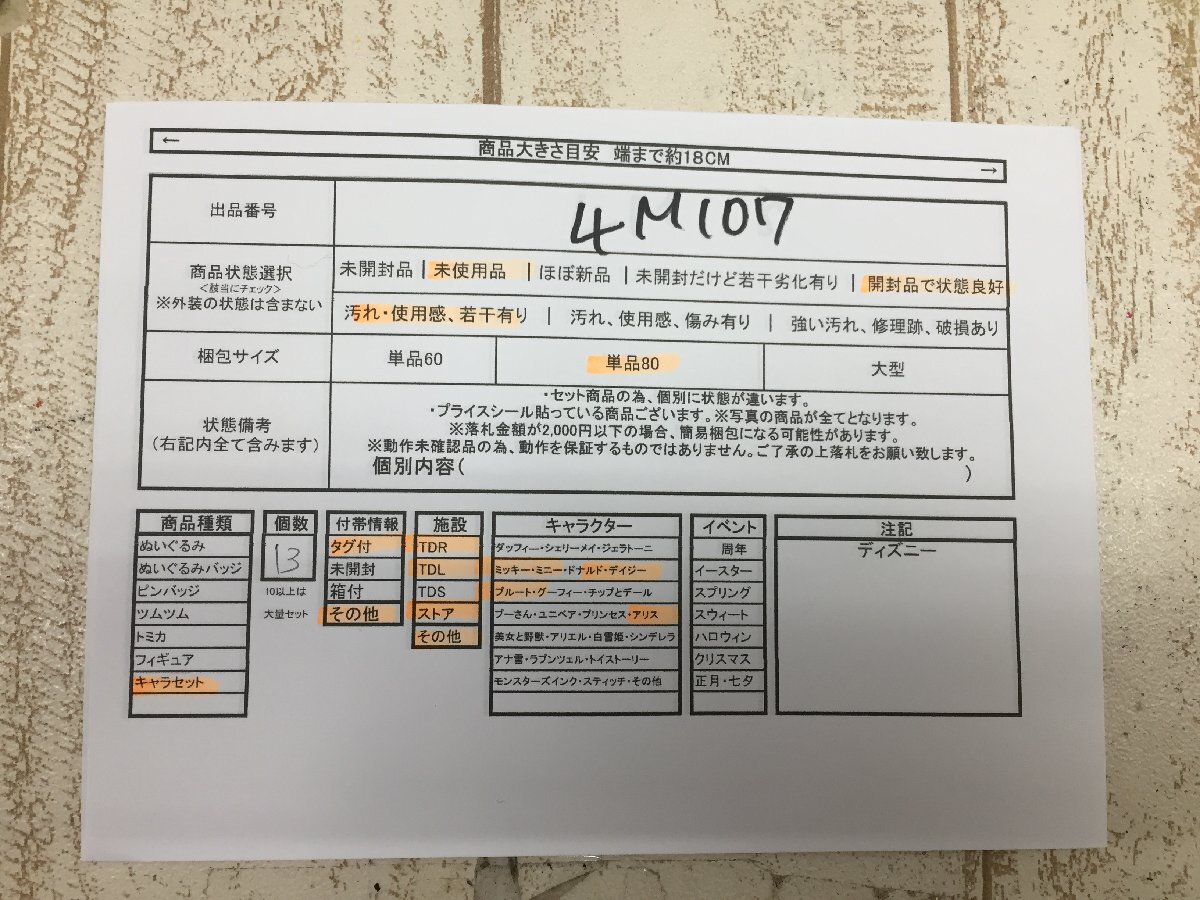 ←
商品大きさ目安 端まで約18CM
→
出品番号
4M107
商品状態選択
＜該当にチェック＞
※外装の状態は含まない
未開封品 | 未使用品 | ほぼ新品 | 未開封だけど若干劣化有り | 開封品で状態良好
汚れ・使用感、若干有り | 汚れ、使用感、傷み有り | 強い汚れ、修理跡、破損あり
梱包サイズ
単品60
単品80
大型
状態備考
(右記内全て含みます)
・セット商品の為、個別に状態が違います。
・プライスシール貼っている商品ございます。※写真の商品が全てとなります。
※落札金額が2,000円以下の場合、簡易梱包になる可能性があります。
※動作未確認品の為、動作を保証するものではありません。ご了承の上落札をお願い致します。
個別内容( )
商品種類
ぬいぐるみ
ぬいぐるみバッジ
ピンバッジ
ツムツム
トミカ
フィギュア
キャラセット
個数
13
10以上は
大量セット
付帯情報
タグ付
未開封
箱付
その他
施設
TDR
TDL
TDS
ストア
その他
キャラクター
ダッフィー・シェリーメイ・ジェラトーニ
ミッキー・ミニー・ドナルド・デイジー
プルート・グーフィー・チップとデール
プーさん・ユニベア・プリンセス・アリス
美女と野獣・アリエル・白雪姫・シンデレラ
アナ雪・ラプンツェル・トイストーリー
モンスターズインク・スティッチ・その他
イベント
周年
イースター
スプリング
スウィート
ハロウィン
クリスマス
正月・七夕
注記
ディズニー